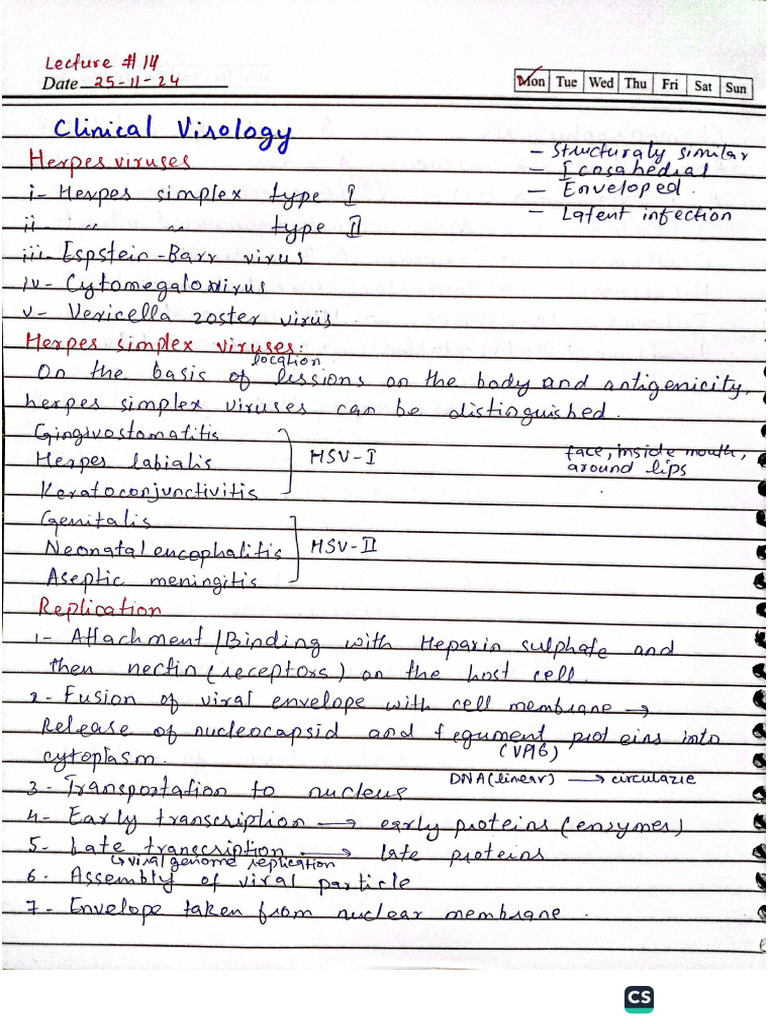 Lecture # 14
Date 25-11-24
Mon Tue Wed Thu Fri Sat Sun
Clinical Virology
Herpes viruses
- Structuraly similar
- Icosahedial
- Enveloped.
- Latent infection
i- Herpes simplex type I
ii- " " type II
iii- Espstein-Barr virus
iv- Cytomegalovirus
v- Vericella zoster virus
Herpes simplex viruses:
location
On the basis of lessions on the body and antigenicity,
herpes simplex viruses can be distinguished.
Gingivostomatitis
Herpes labialis
Keratoconjunctivitis
HSV-I
face, inside mouth,
around lips
Genitalis
Neonatal encephalitis
Aseptic meningitis
HSV-II
Replication
1- Attachment/Binding with Heparin sulphate and
then nectin (receptors) on the host cell.
2- Fusion of viral envelope with cell membrane →
Release of nucleocapsid and tegument proteins into
(VP16)
cytoplasm.
3- Transportation to nucleus
DNA(linear) → circularize
4- Early transcription → early proteins (enzymes)
5- Late transcription → late proteins
↳ viral genome replication
6- Assembly of viral particle
7- Envelope taken from nuclear membrane.
CS